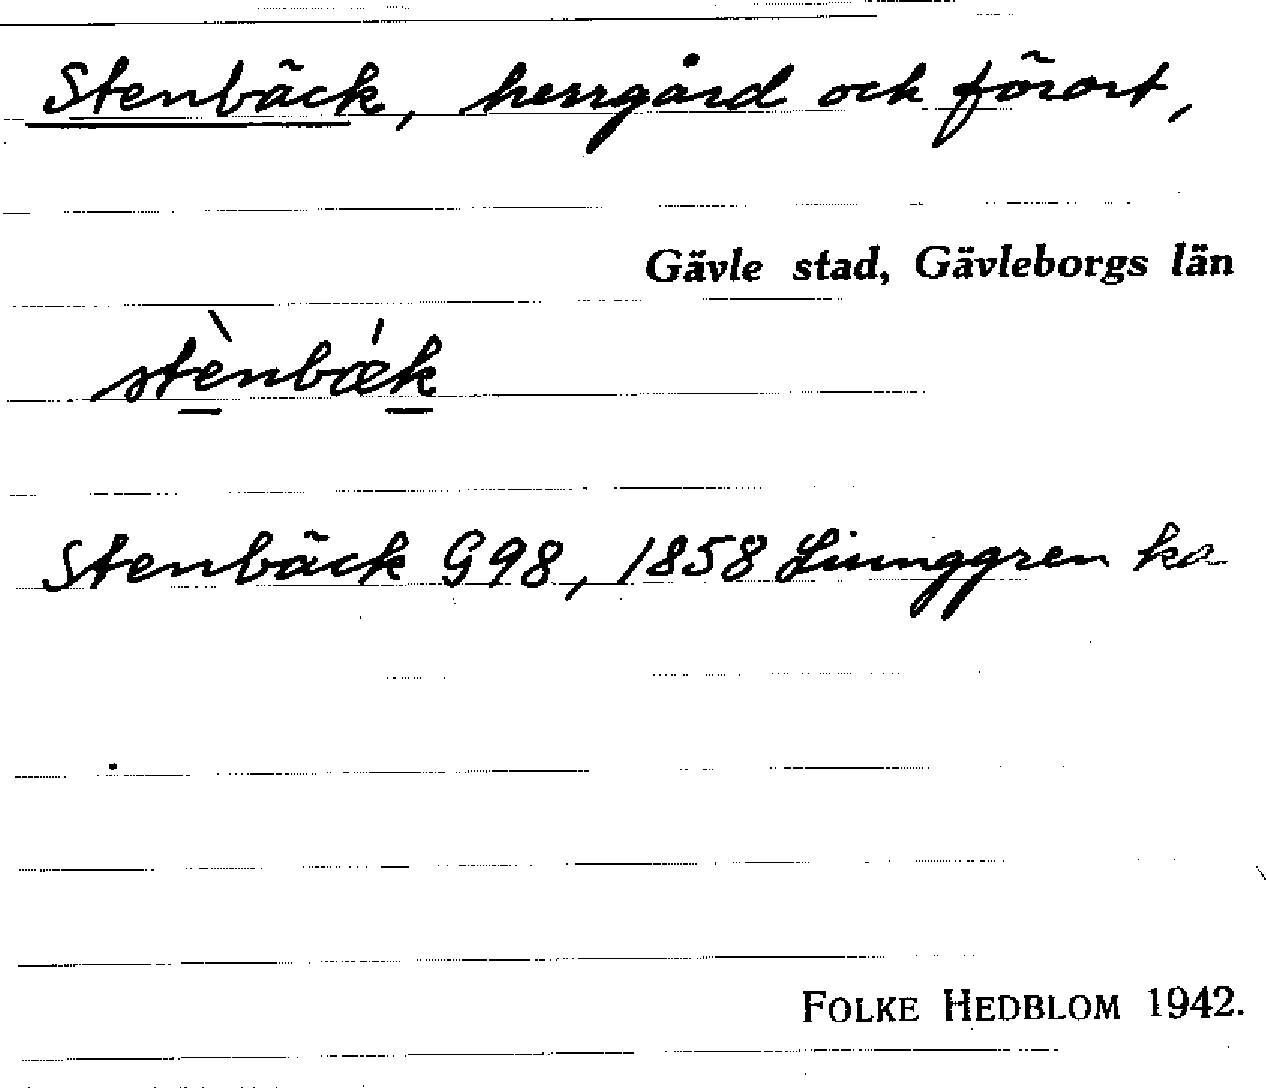 Stenbäck, herrgård och förort,
Gävle stad, Gävleborgs län
stènbǽk
Stenbäck G98, 1858 Ljunggren ka
FOLKE HEDBLOM 1942.